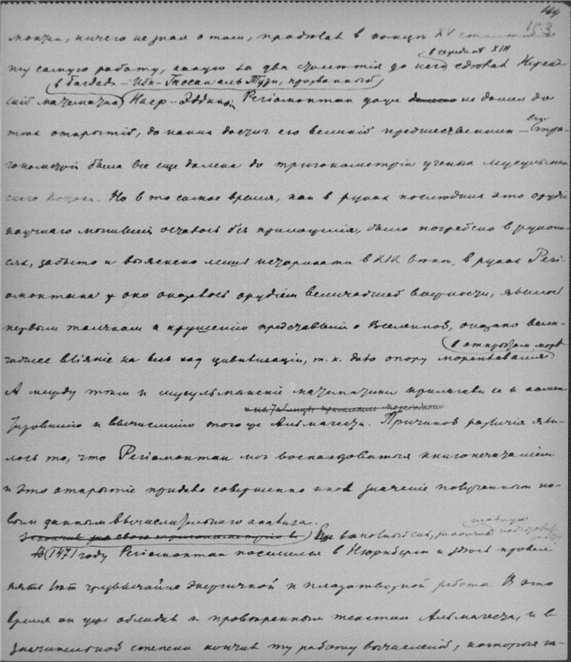 164
153
ничего не зная о том, проделав в конце XV столетия
в середине XIII
ту самую работу, какую за два столетия до него сделал Персид-
в Багдаде Ибн-Гассан аль Туди, прозванный
ский математик Наср-Эддин. Региомонтан даже не дошел до
тех открытий, до каких достиг его великий предшественник – его три-
гонометрия была все еще далека до тригонометрии ученых мусульман-
ского Востока. Но в то самое время, как в руках последних это орудие
научного мышления осталось без приложения, было погребено в рукопи-
сях, забыто и выяснено лишь исторически в XIX веке, в руках Реги-
омонтана оно оказалось орудием величайшей важности, явилось
первым толчком к крушению представлений о Вселенной, оказало вели-
в открытом море
чайшее влияние на весь ход цивилизации, т. к. дало опору мореплаванию
А между тем и мусульманские математики прилагали ее к
и вычислению того же Альмагеста. Причиной различия яви-
лось то, что Региомонтан мог воспользоваться книгопечатанием
и это открытие придало совершенно иное значение полученным но-
вым данным вычислительного анализа.
В 1471 году Региомонтан поселился в Нюрнберге и здесь провел
пять лет чрезвычайно энергичной и плодотворной работы. В это
время он уже обладал и проверенным текстом Альмагеста, и в
значительной степени кончил ту работу вычислений, которая